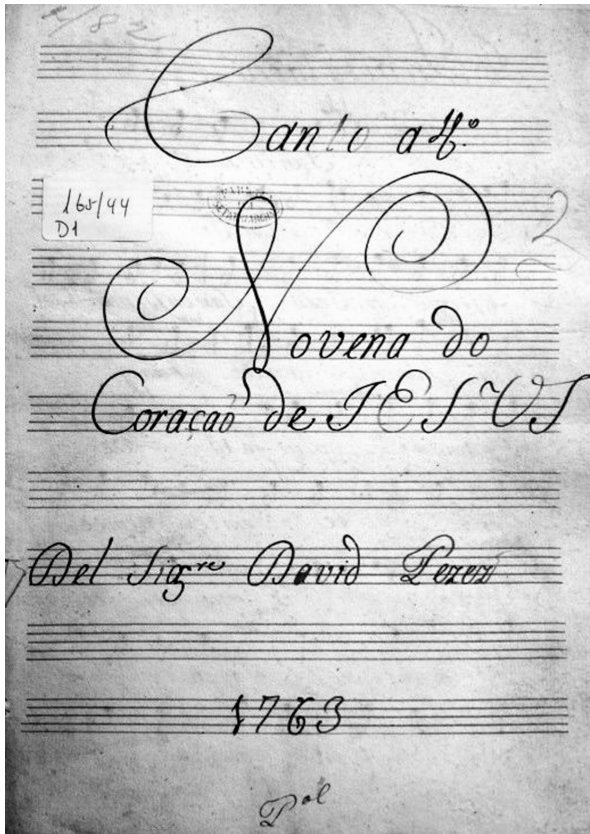 Canto a 4º
165/44
D1
Novena do
Coração de IESUS
Del Sigre David Perez
1763